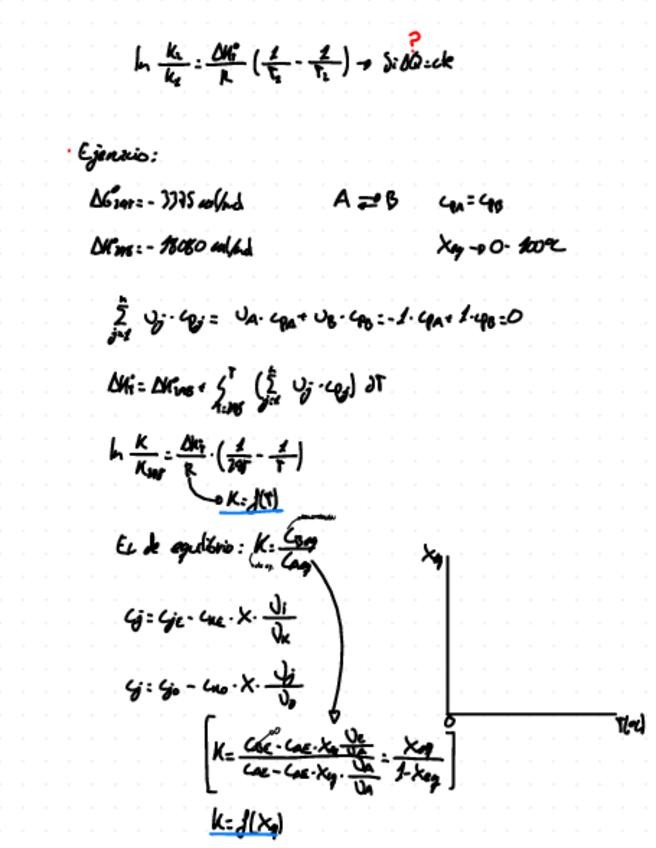 ?
ln K₂/K₁ = ΔH°ᵣ/R (1/T₁ - 1/T₂) → Si ΔQ = cte
· Ejercicio:
ΔG°₂₉₈ = - 3375 cal/mol A ⇌ B cpA = cpB
ΔH°₂₉₈ = - 18080 cal/mol Xeq → 0 - 100ºC
∑ⱼ₌₁ⁿ νj · cpj = νA · cpA + νB · cpB = -1 · cpA + 1 · cpB = 0
ΔH°ᵣ = ΔH°₂₉₈ + ∫ᵀT=298 (∑ⱼ₌₁ⁿ νj · cpj) dT
ln K/K₂₉₈ = ΔHᵣ/R · (1/298 - 1/T)
K = f(T)
Ec de equilibrio: K = CBeq/CAeq
Xeq
cj = cjE - cKE · X · νj/νK
cj = cj0 - cK0 · X · νj/νK
[K = (CBE - CAE · Xeq νB/νA)/(CAE - CAE · Xeq · νA/νA) = Xeq/(1 - Xeq)]
0
T(ºC)
K = f(Xeq)